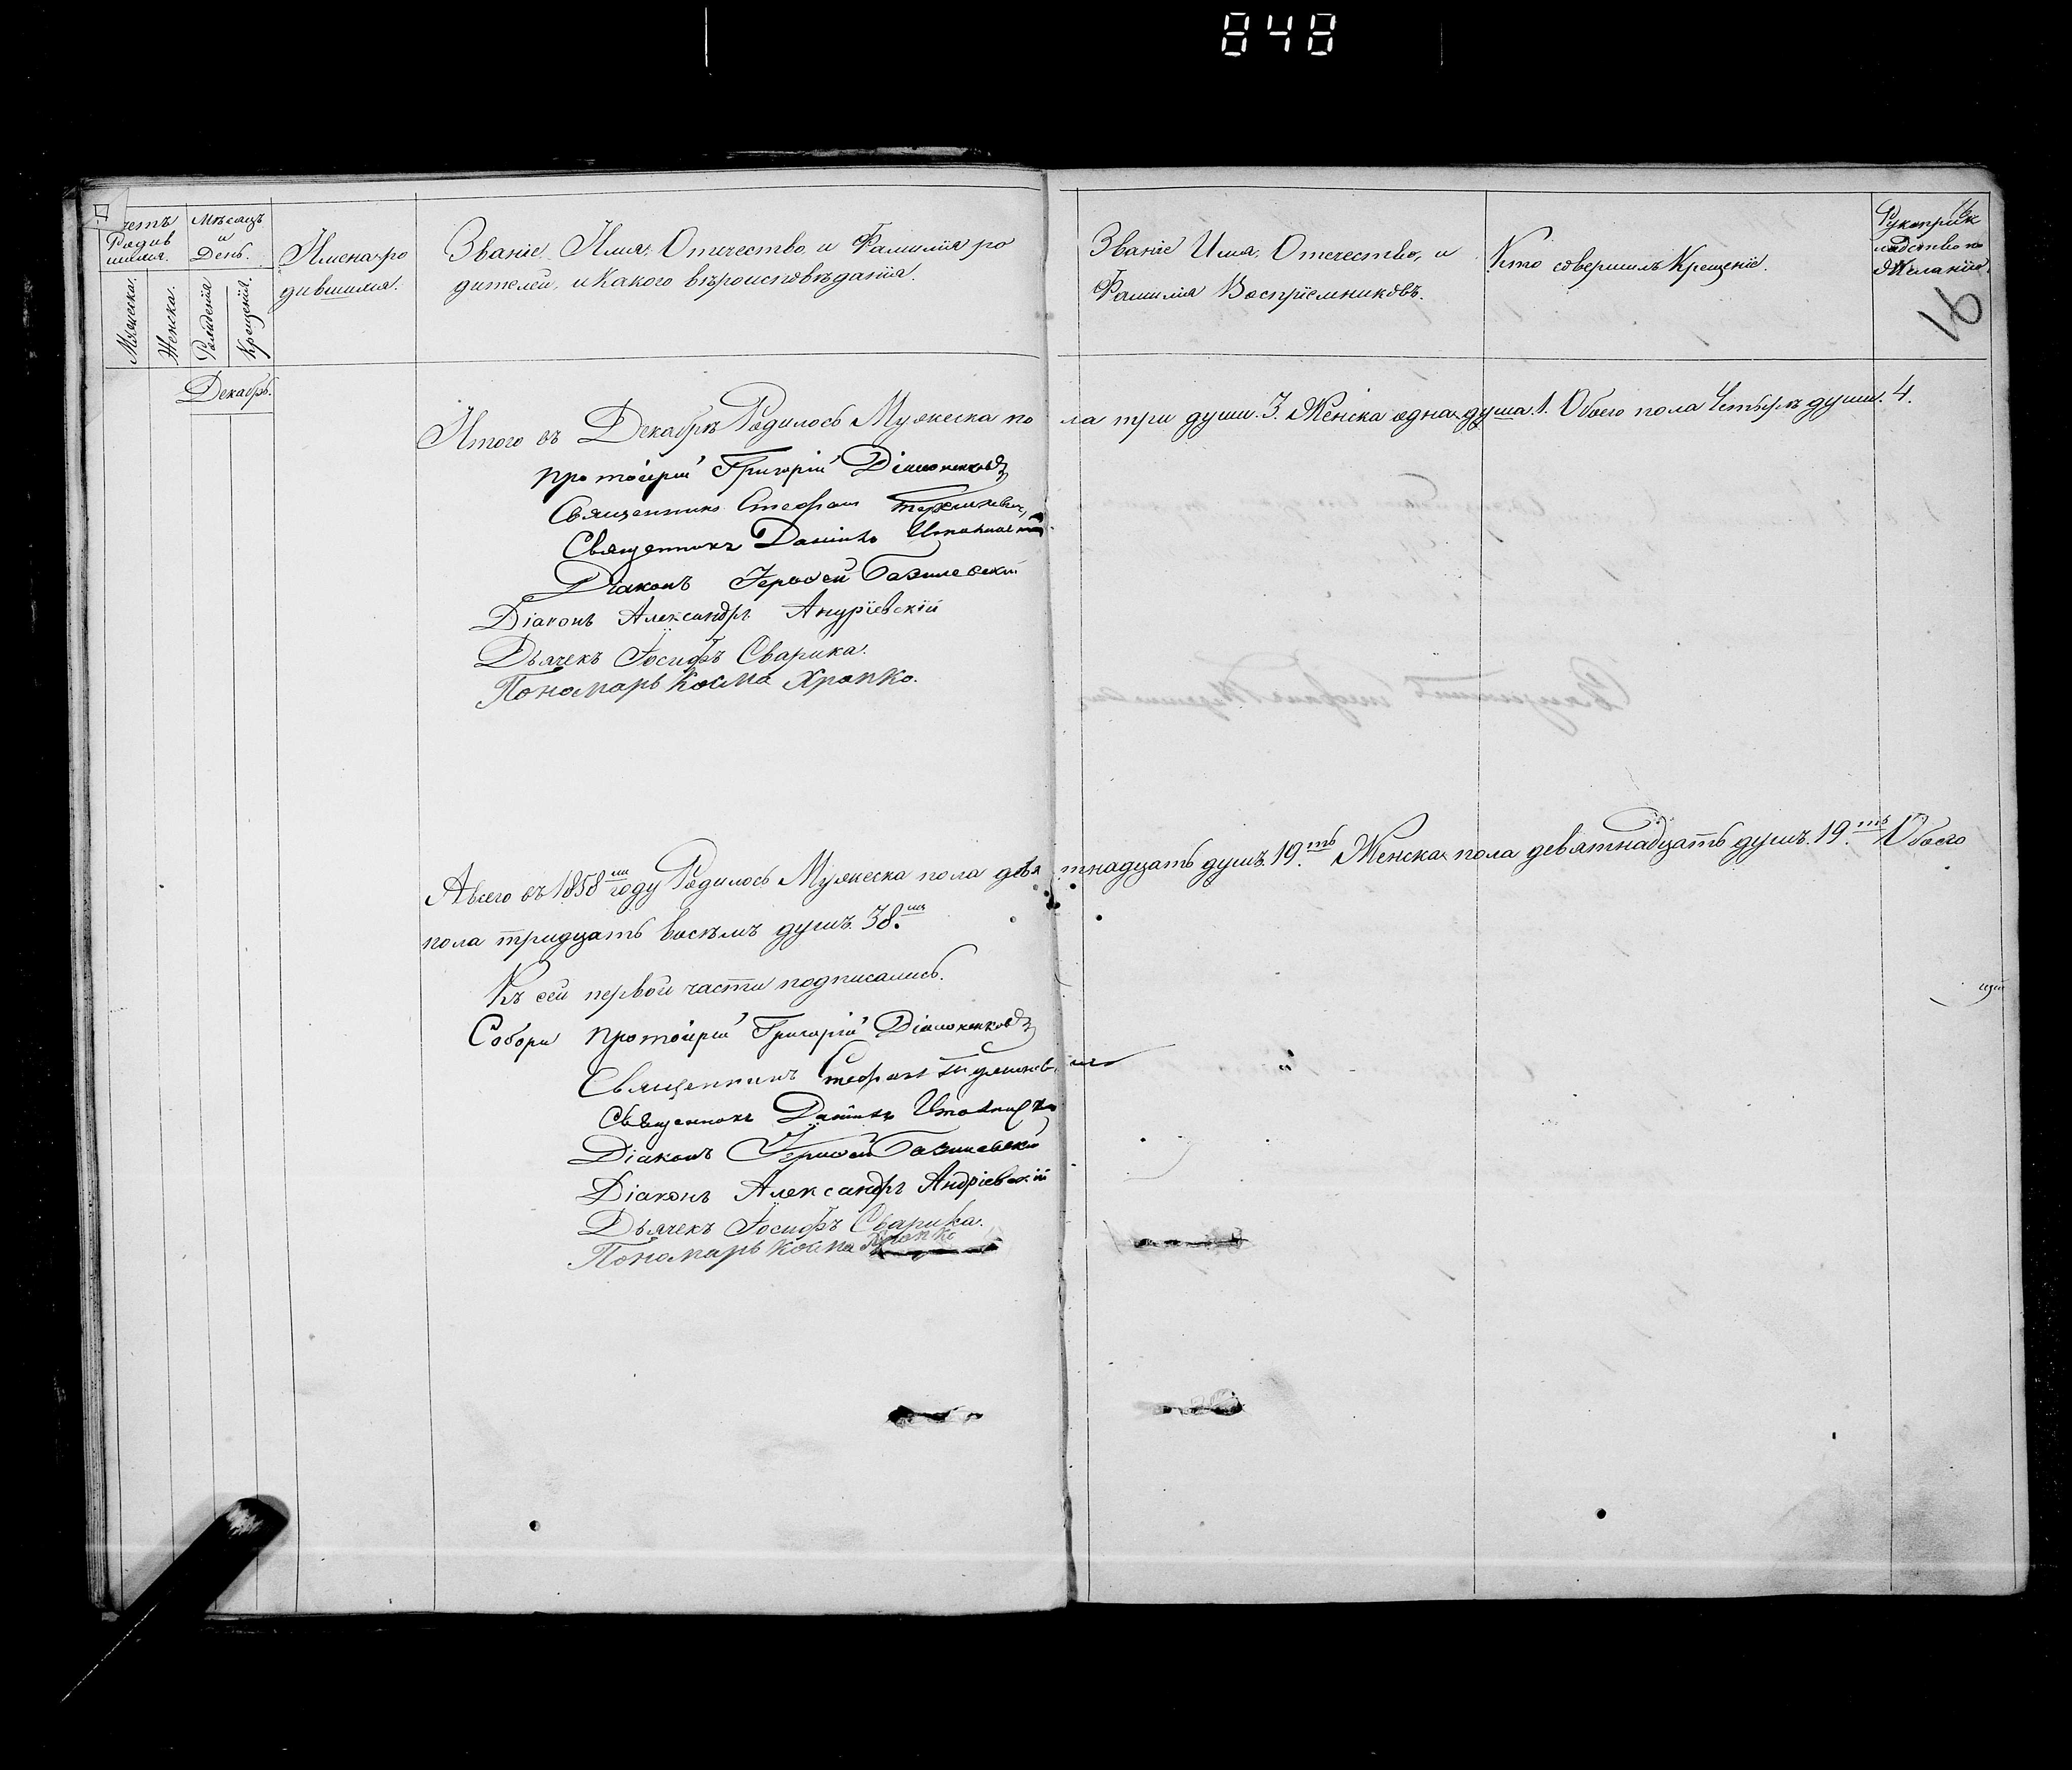 848
четъ Родив шихся.
Мѣсяцъ и День.
Имена ро дившихся.
Званіе Имя, Отчество, и Фамилія ро дителей, и какого вѣроисповѣданія.
Званіе Имя, Отечество, и Фамилія Воспріемниковъ.
Кто совершилъ Крещеніе.
Рукоприк ладство по Желанію.
Мужеска.
Женска.
Рожденія
Крещенія.
16
Декабрь.
Итого въ Декабрѣ Родилось Мужеска по ла три души. 3. Женска одна душа. 1. Обоего пола Четырѣ души. 4.
Протоіерей Григорій
Священникъ Стефан
Священникъ Даніилъ
Діаконъ Іерофей Базилевскій
Діаконъ Александръ Андріевскій
Дьячекъ Іосифъ Сварика.
Пономарь Косма Хропко.
А всего въ 1858мъ году Родилось Мужеска пола девя тнадцать душъ. 19.ть Женска пола девятнадцать душъ. 19.ть Обоего
пола тридцать восѣмъ душъ. 38.мъ
Къ сей первой части подписались.
Собора Протоіерей Григорій
Священникъ Стефан
Священникъ Даніилъ
Діаконъ Іерофей Базилевскій
Діаконъ Александръ Андріевскій
Дьячекъ Іосифъ Сварика.
Пономарь Косма Хропко